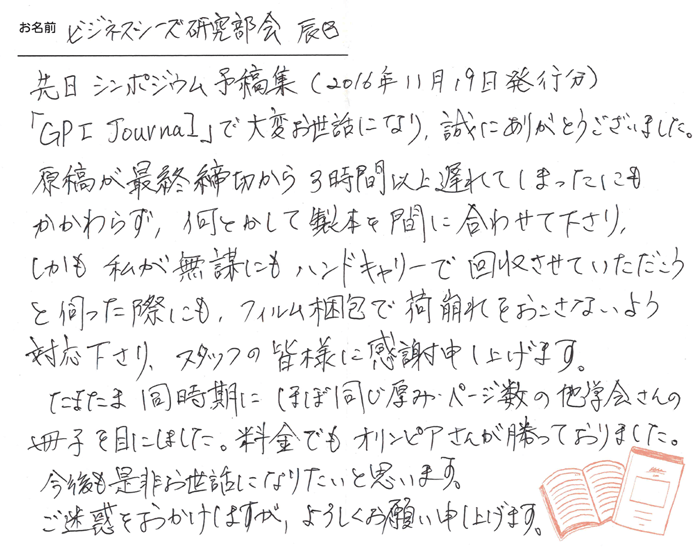 お名前 ビジネスシーズ研究部会 辰巳
先日 シンポジウム予稿集(2016年11月19日発行分)
「GPI Journal」で大変お世話になり、誠にありがとうございました。
原稿が最終締切から3時間以上遅れてしまったにも
かかわらず、何とかして製本を間に合わせて下さり、
しかも私が無謀にもハンドキャリーで回収させていただこう
と伺った際にも、フィルム梱包で荷崩れをおこさないよう
対応下さり、スタッフの皆様に感謝申し上げます。
たまたま同時期にほぼ同じ厚み・ページ数の他学会さんの
冊子を目にしました。料金でもオリンピアさんが勝っておりました。
今後も是非お世話になりたいと思います。
ご迷惑をおかけしますが、よろしくお願い申し上げます。